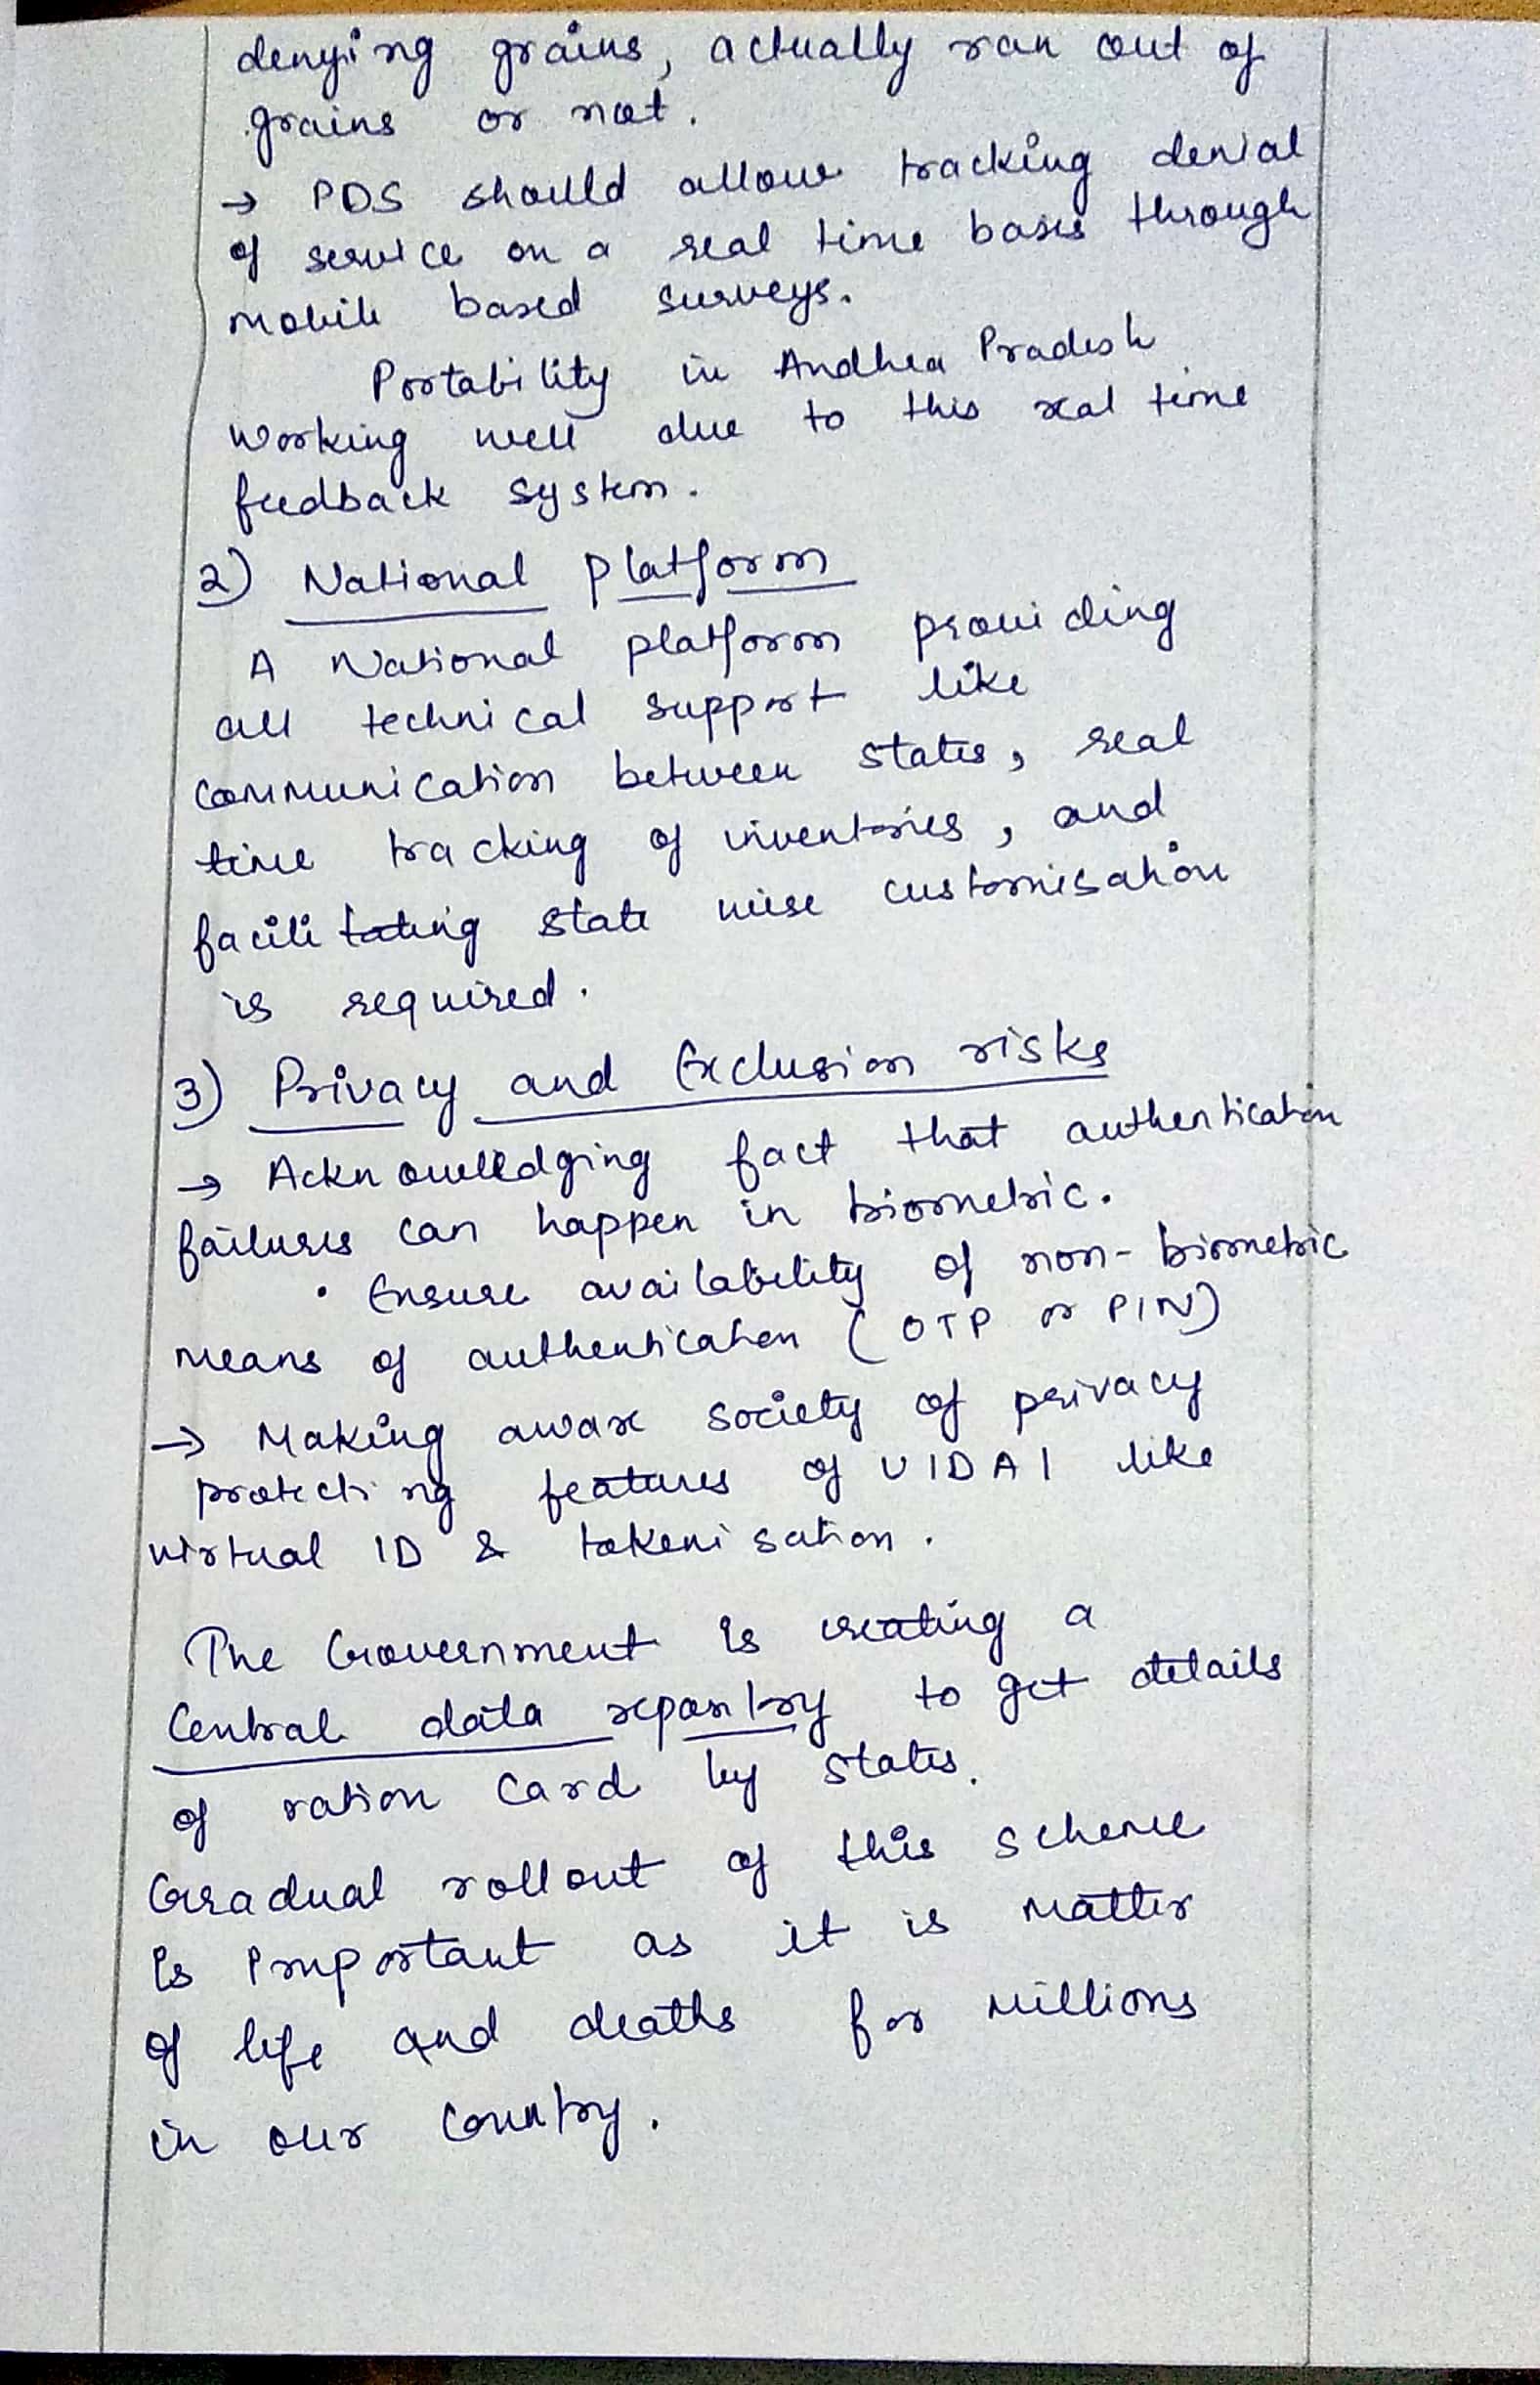 denying grains, actually ran out of
grains or not.
→ PDS should allow tracking denial
of service on a real time basis through
mobile based surveys.
Portability in Andhra Pradesh
working well due to this real time
feedback system.
2) National Platform
A National platform providing
all technical support like
communication between states, real
time tracking of inventories, and
facilitating state wise customisation
is required.
3) Privacy and Exclusion risks
→ Acknowledging fact that authentication
failures can happen in biometric.
• Ensure availability of non-biometric
means of authentication (OTP or PIN)
→ Making aware society of privacy
protecting features of UIDAI like
virtual ID & tokenisation.
The Government is creating a
Central data repositry to get details
of ration card by states.
Gradual rollout of this scheme
is important as it is matter
of life and deaths for millions
in our country.